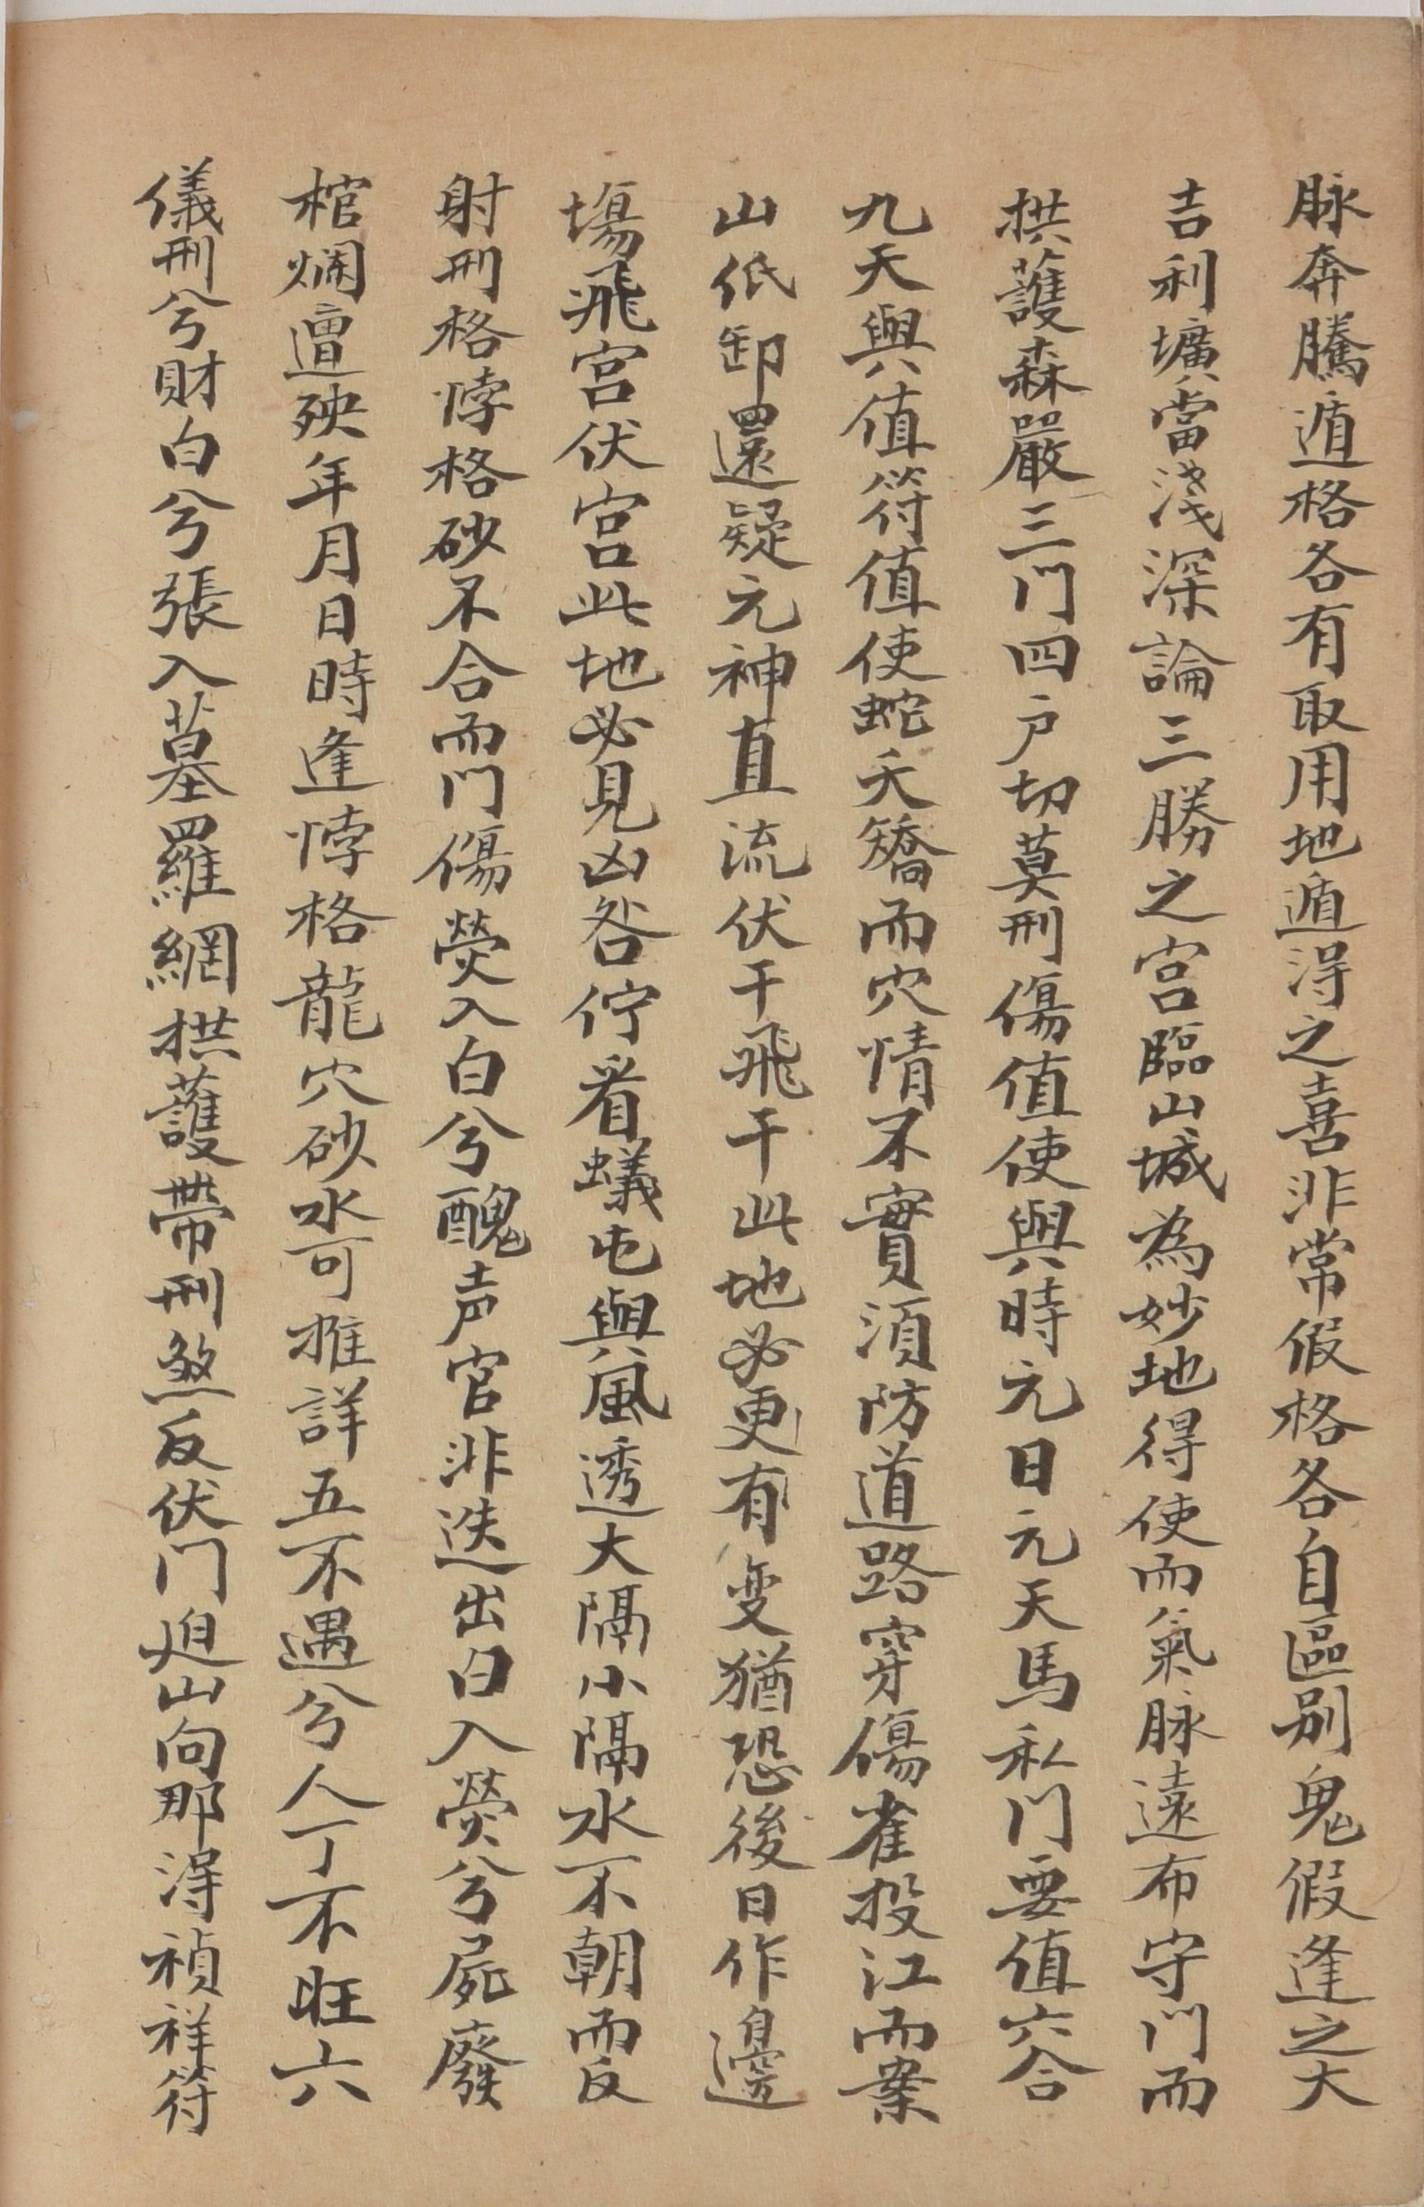 脉奔騰遁格各有取用地遁淂之喜非常假格各自區别鬼假逢之大
吉利壙當淺深論三勝之宫臨山城為妙地得使而氣脉遠布守门而
拱護森嚴三门四户切莫刑傷值使與時元日元天馬私门要值六合
九天與值符值使蛇夭矯而穴情不實須防道路穿傷雀投江而案
山低卸還疑元神直流伏干飛干此地必更有变猶恐後日作邊
塲飛宫伏宫此地必見凶咎佇看蟻屯與風透大隔小隔水不朝而反
射刑格悖格砂不合而门傷熒入白兮醜声官非迭出白入熒兮屍廢
棺爛遭殃年月日時逢悖格龍穴砂水可推詳五不遇兮人丁不旺六
儀刑兮財白兮張入墓羅網拱護帶刑煞反伏门迫山向那淂禎祥符